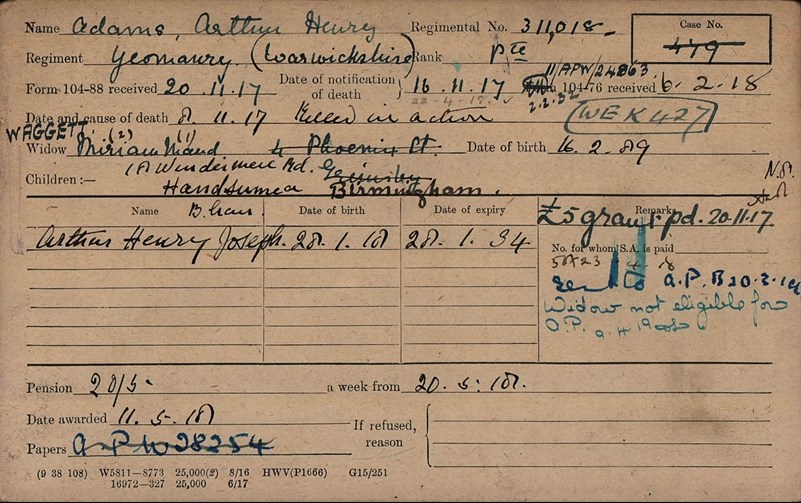 Name Adams, Arthur Henry Regimental No. 311,018 Case No. 479
Regiment Yeomanry (Warwickshire) Rank Pte
11/APW/24863
Form 104-88 received 20.11.17 Date of notification of death 16.11.17 104-76 received 6.2.18
22-4-18. 2.2.32
Date and cause of death 8.11.17 Killed in action (WEK427)
WAGGETT (2) (1)
Widow Miriam Maud 4 Phoenix St. Date of birth 16.2.89
Children:— 1A Windermere Rd. Grimsby N.S.
Handsworth Birmingham.
Name B'ham. Date of birth Date of expiry Remarks
£5 grant pd. 20.11.17
Arthur Henry Joseph. 28.1.18 28.1.34 No. for whom S.A. is paid
A.P.B 20.3.19
Widow not eligible for
O.P.
Pension 20/5 a week from 20.5.18.
Date awarded 11.5.18 If refused, reason
Papers A.P.W 28254
(9 38 108) W5811—8773 25,000(2) 8/16 HWV(P1666) G15/251
16972—327 25,000 6/17